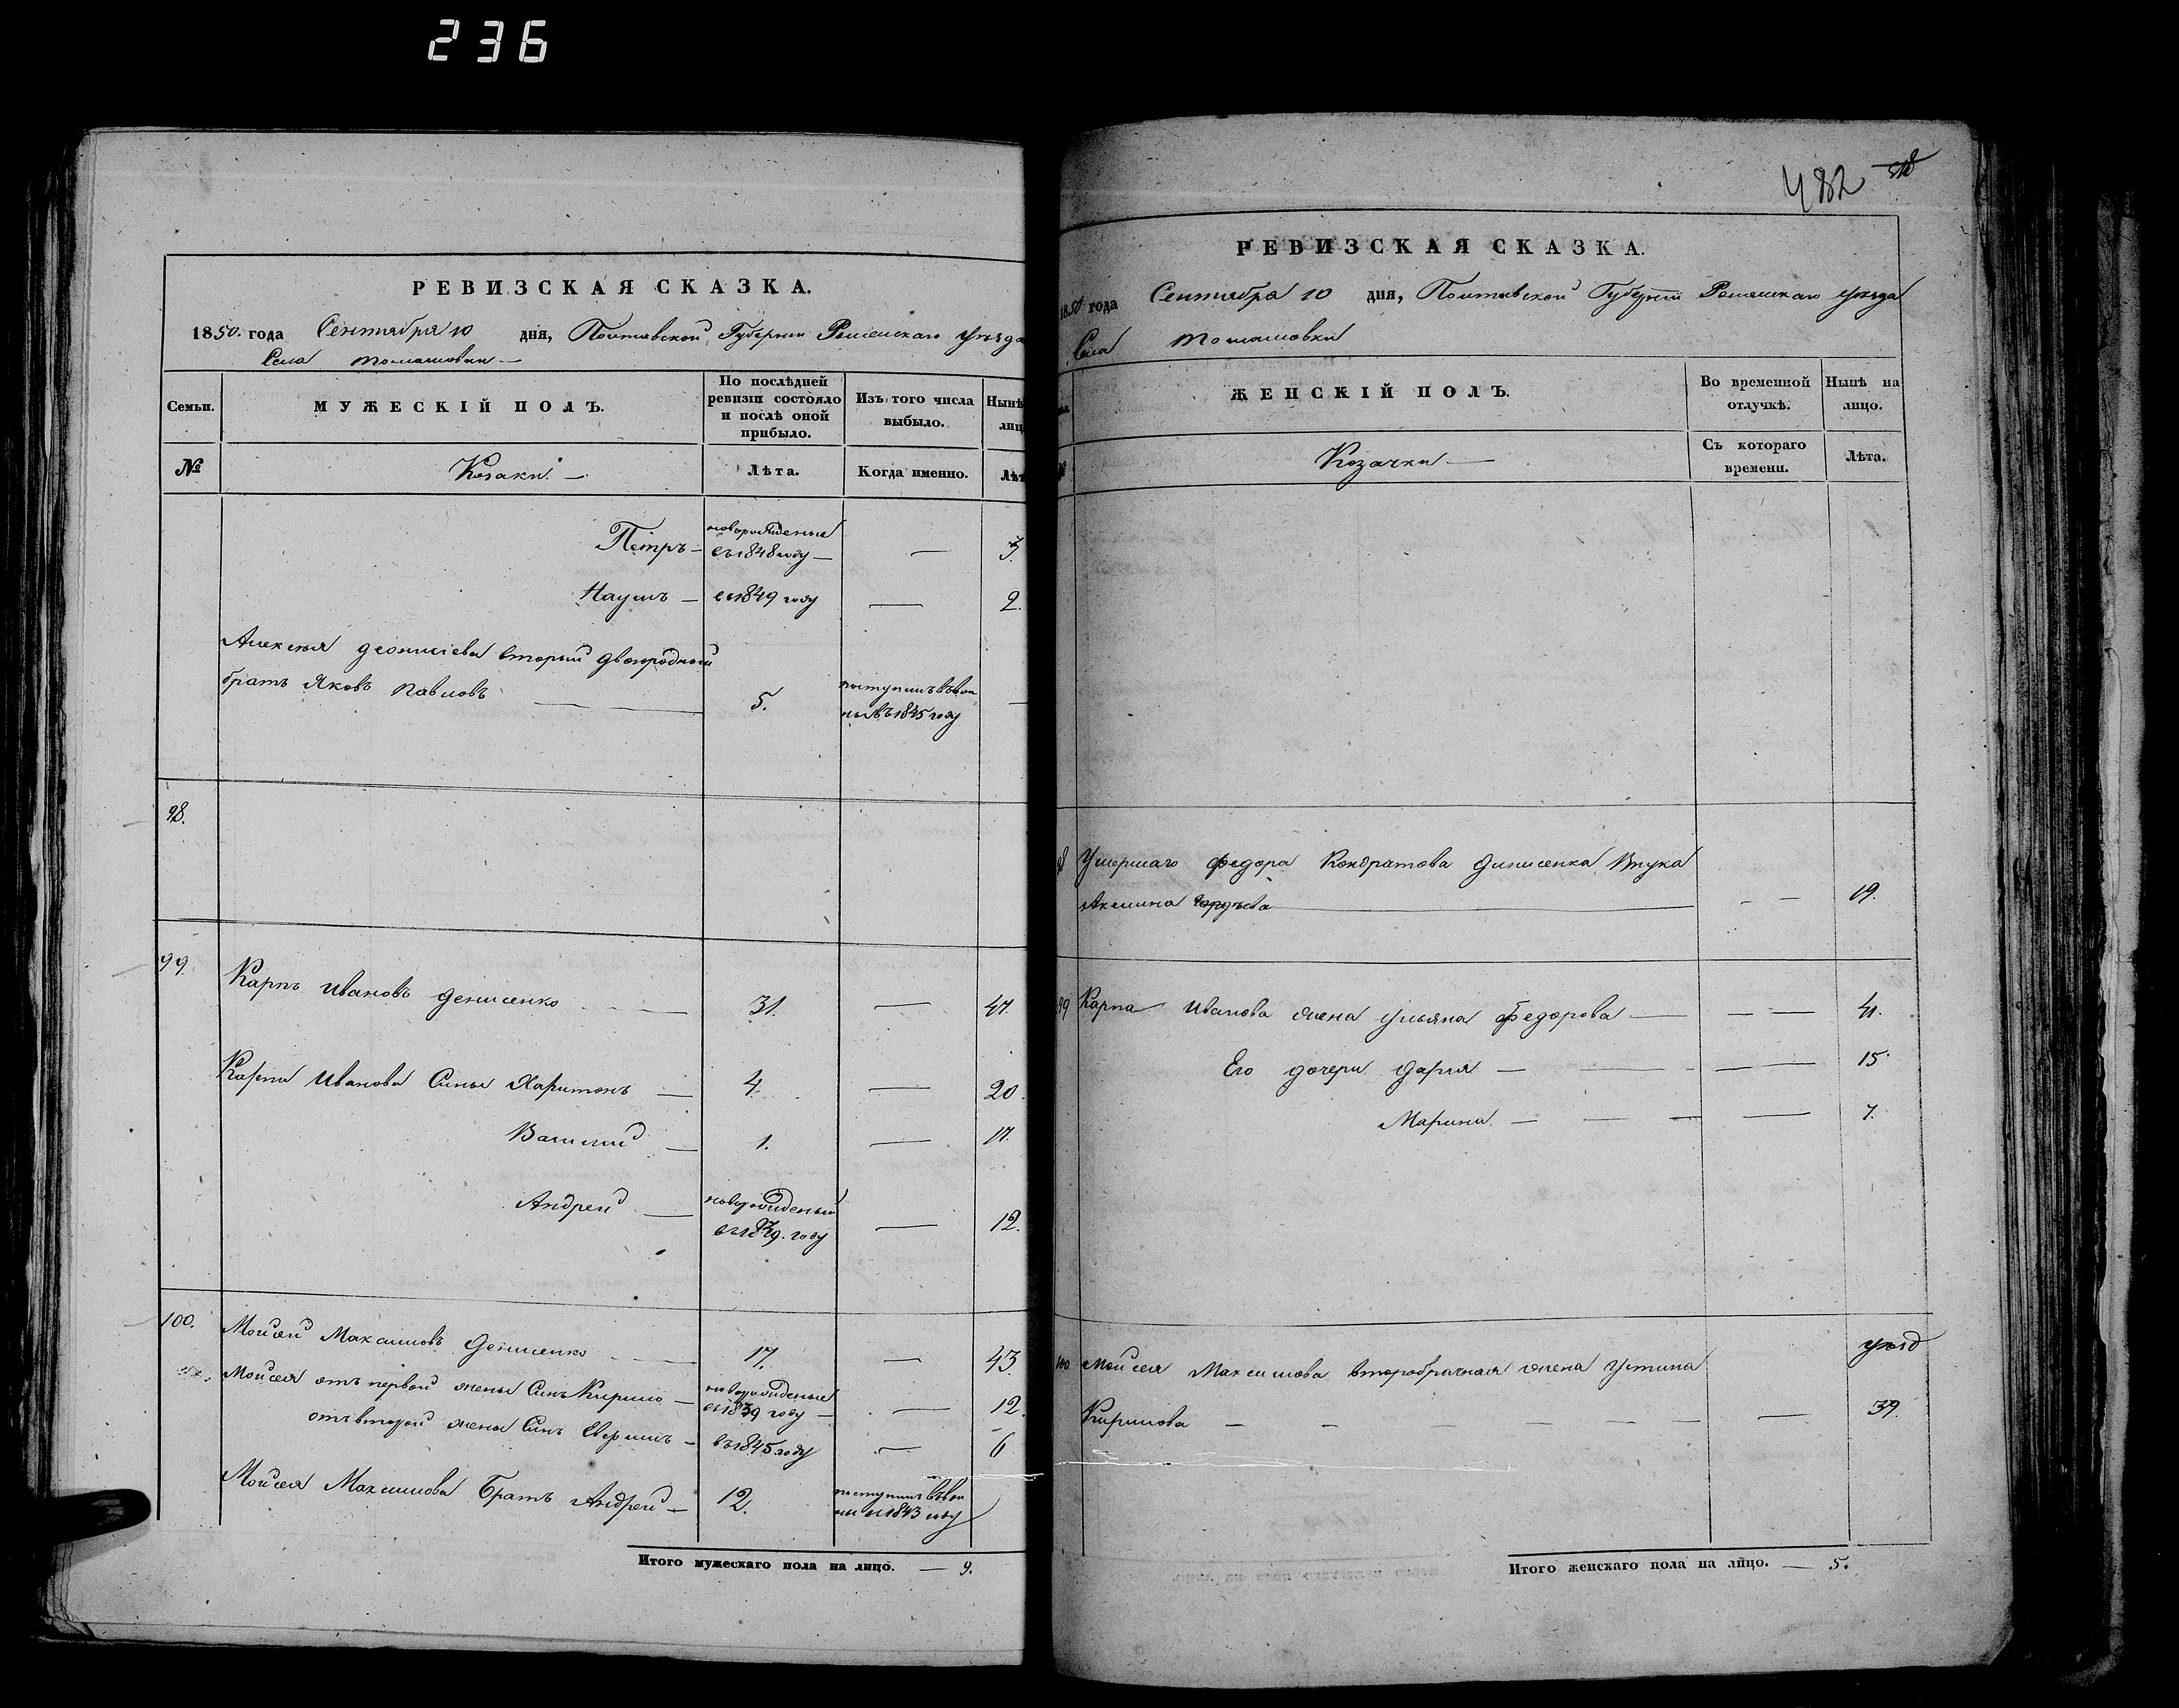 236
РЕВИЗСКАЯ СКАЗКА.
1850. года Сентября 10 дня, Полтавской Губернии Роменскаго уѣзда
Села Томашовки
Семьи.
МУЖЕСКІЙ ПОЛЪ.
По послѣдней ревизіи состояло и послѣ оной прибыло.
Изъ того числа выбыло.
Нынѣ
лиц
№
Козаки.
Лѣта.
Когда именно.
Лѣт
Петръ — новорожденые въ 1848 году — — 3.
Наумъ — въ 1849 году — 2.
Алексѣя Деонисіева вторый двоюродный
братъ Яковъ Павловъ — 5. поступилъ въ 1845 году —
98.
99. Карпъ Ивановъ Денисенко — 31. — 47.
Карпа Иванова Сины Харитонъ — 4. — 20.
Василий — 1. — 17.
Андрей — новорожденый въ 1839. году — 12.
100. Мойсей Максимовъ Денисенко — 17. — 43.
Мойсея отъ первой жены Синъ Кирило — новорожденые въ 1839 году — — 12.
отъ второй жены Синъ — въ 1845 году — 6
Мойсея Максимова Братъ Андрей — 12. поступилъ 1843 году
Итого мужескаго пола на лицо. — 9.
482
РЕВИЗСКАЯ СКАЗКА.
1850 года Сентября 10 дня, Полтавской Губернии Роменскаго уѣзда
Села Томашовки
ЖЕНСКІЙ ПОЛЪ.
Во временной отлучкѣ.
Нынѣ на лицо.
Козачки —
Съ котораго времени.
Лѣта.
98 Умершаго Федора Кондратова Динисенка Внука
Акилина — — — 19.
99 Карпа Иванова жена Ульяна Федорова — — — 41.
Его дочери Дарія — — — 15.
Марина — — — 7.
100 Мойсея Максимова второбрачная жена Устина
Кирилова — — 39.
Итого женскаго пола на лицо. — 5.